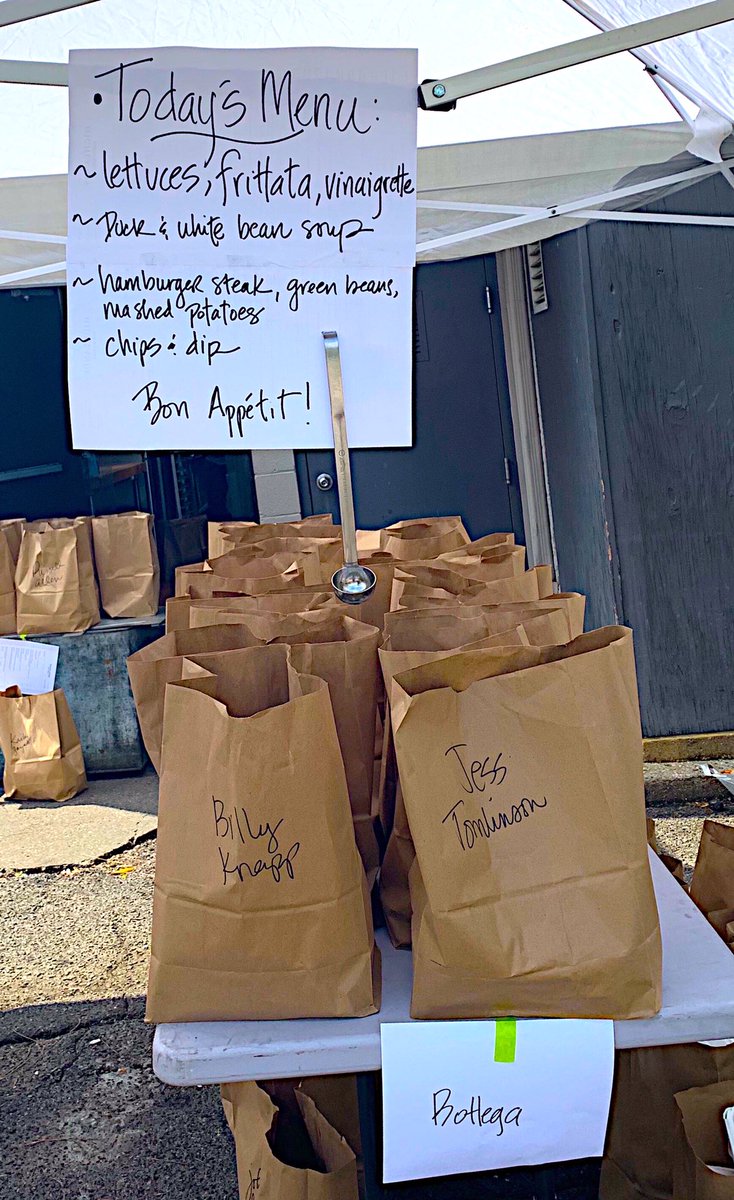 • Today's Menu:
~ lettuces, frittata, vinaigrette
~ Duck & white bean soup
~ hamburger steak, green beans,
mashed potatoes
~ chips & dip
Bon Appétit!
Billy
Knapp
Jess
Tomlinson
Bottega